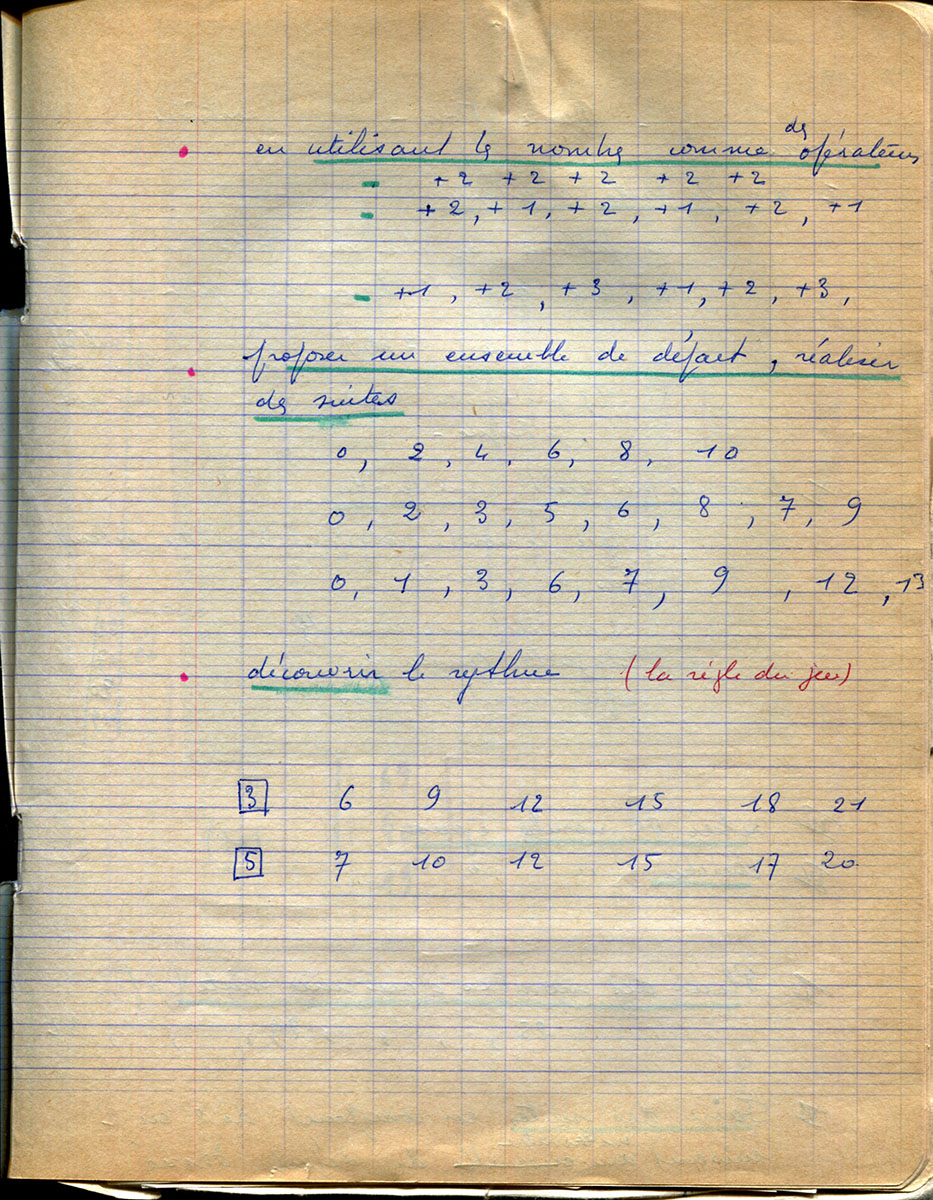 des
en utilisant les nombres comme opérateurs
- +2 +2 +2 +2 +2
- +2, +1, +2, +1, +2, +1
- +1, +2, +3, +1, +2, +3,
proposer un ensemble de départ, réaliser
des suites
0, 2, 4, 6, 8, 10
0, 2, 3, 5, 6, 8, 7, 9
0, 1, 3, 6, 7, 9, 12, 13
découvrir le rythme (la règle du jeu)
3 6 9 12 15 18 21
5 7 10 12 15 17 20